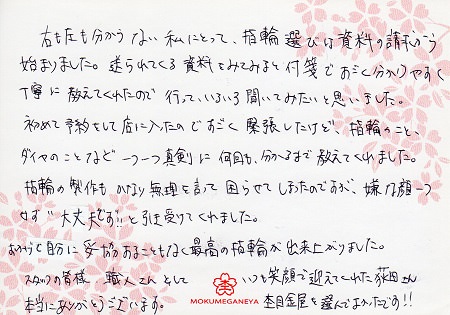 右も左も分からない私にとって、指輪選びは資料の請求から
始まりました。送られてくる資料をみてみると付箋ですごく分かりやすく
丁寧に教えてくれたので行って、いろいろ聞いてみたいと思いました。
初めて予約をして店に入ったのですごく緊張したけど、指輪のこと、
ダイヤのことなど一つ一つ真剣に何回も、分かるまで教えてくれました。
指輪の製作もかなり無理を言って困らせてしまったのですが、嫌な顔一つ
せず"大丈夫です!!"と引き受けてくれました。
おかげで自分に妥協することもなく最高の指輪が出来上がりました。
スタッフの皆様 職人さん そして いつも笑顔で迎えてくれた荻田さん
本当にありがとうございます。 杢目金屋を選んでよかったです!!
MOKUMEGANEYA